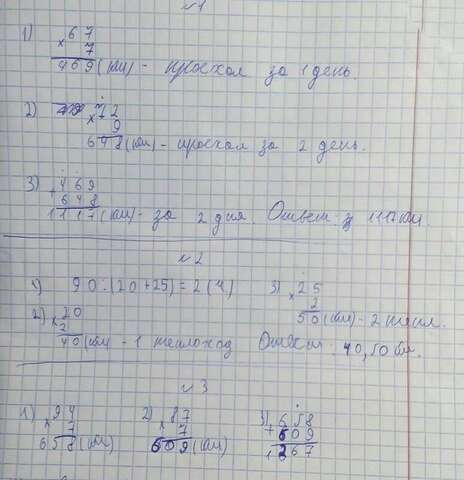 №1
1) × 67
7
469 (км) - проехал за 1 день.
2) × 72
9
648 (км) - проехал за 2 день.
3) + 469
648
1117 (км) - за 2 дня. Ответ: 1117 км.
№2
1) 90 : (20 + 25) = 2 (ч)
3) × 25
2
50 (км) - 2 тепл.
2) × 20
2
40 (км) - 1 теплоход Ответ: 40, 50 км.
№3
1) × 94
7
658 (км)
2) × 87
7
609 (км)
3) + 658
609
1267